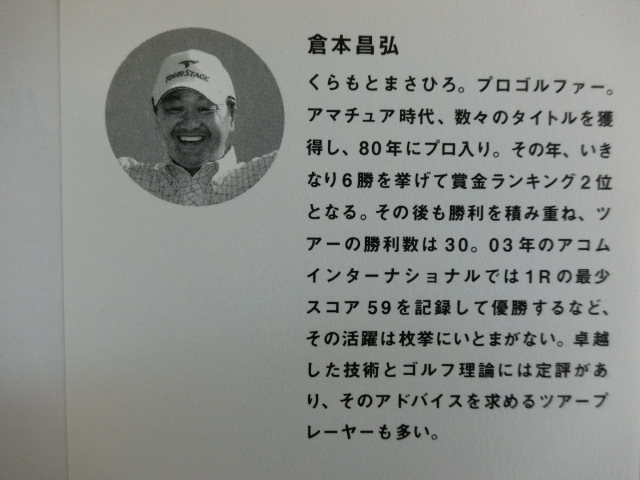 TOURSTAGE
倉本昌弘
くらもとまさひろ。プロゴルファー。
アマチュア時代、数々のタイトルを獲
得し、80年にプロ入り。その年、いき
なり6勝を挙げて賞金ランキング2位
となる。その後も勝利を積み重ね、ツ
アーの勝利数は30。03年のアコム
インターナショナルでは1Rの最少
スコア59を記録して優勝するなど、
その活躍は枚挙にいとまがない。卓越
した技術とゴルフ理論には定評があ
り、そのアドバイスを求めるツアープ
レーヤーも多い。